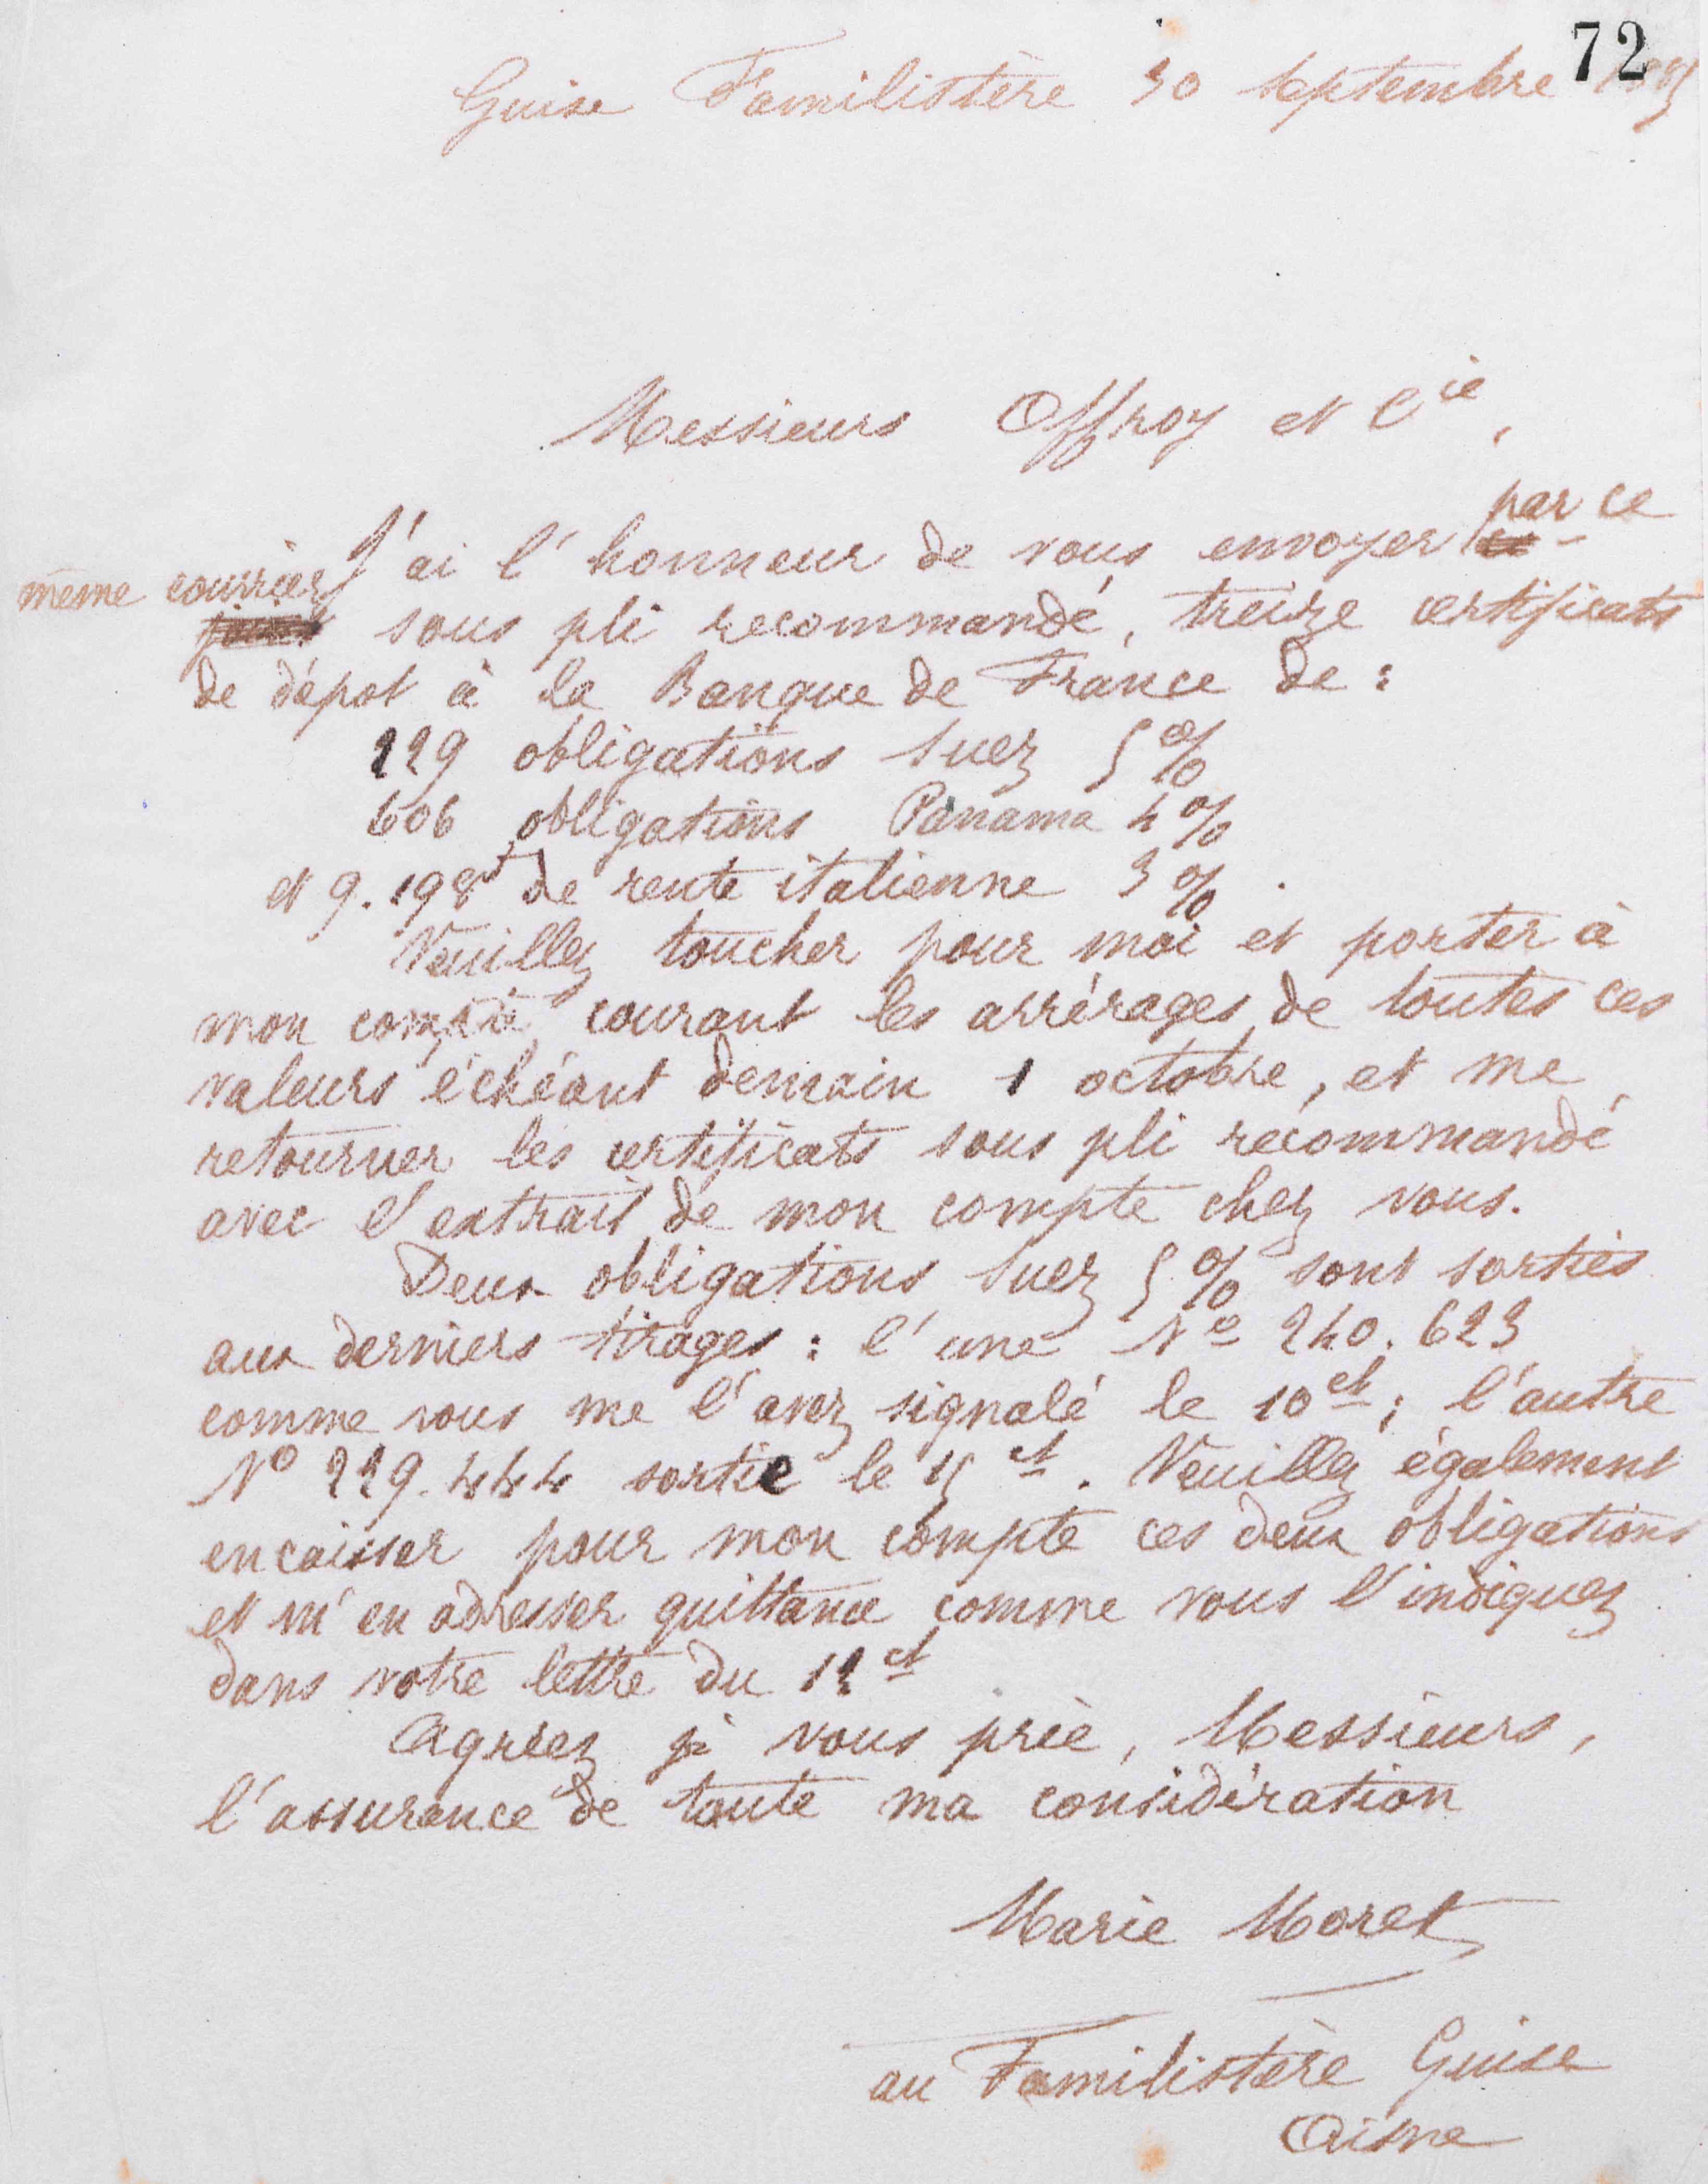 72
Guise Familistère 30 septembre
Messieurs Offroy et Cie,
par ce
J'ai l'honneur de vous envoyer
même courrier
sous pli recommandé, treize certificats
de dépot à la Banque de France de :
229 obligations Suez 5 %
606 obligations Panama 4 %
et 9.198f de rente italienne 3 %.
Veuillez toucher pour moi et porter à
mon compte courant les arrérages de toutes ces
valeurs échéant demain 1 octobre, et me
retourner les certificats sous pli recommandé
avec l'extrait de mon compte chez vous.
Deux obligations Suez 5 % sont sorties
aux derniers tirages : l'une No 240.623
comme vous me l'avez signalé le 10 ct ; l'autre
No 229.444 sortie le 15 ct. Veuillez également
encaisser pour mon compte ces deux obligations
et m'en adresser quittance comme vous l'indiquez
dans votre lettre du 12 ct
Agréez je vous prie, Messieurs,
l'assurance de toute ma considération
Marie Moret
au Familistère Guise
Aisne